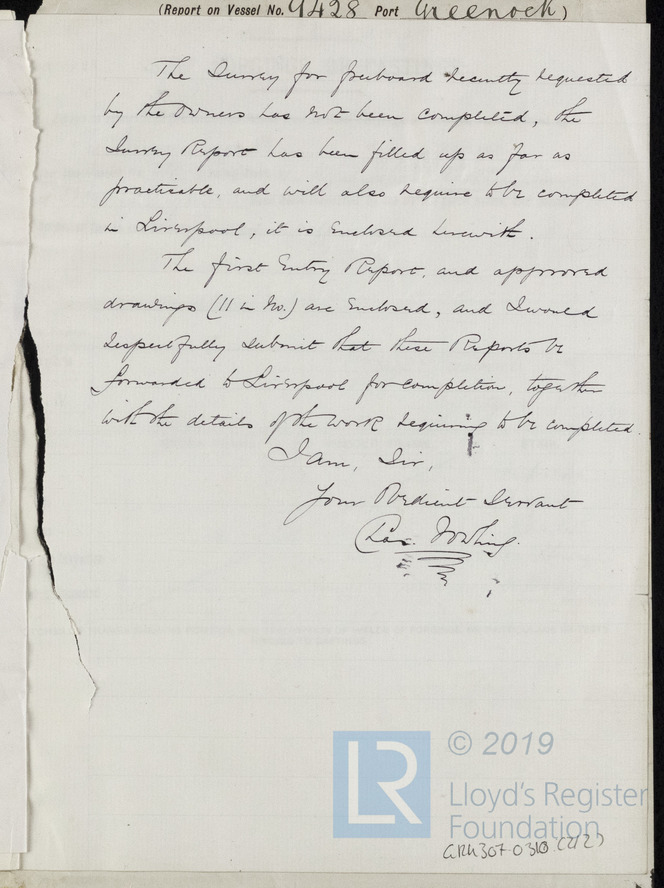 (Report on Vessel No. 9428 Port Greenock)
The Survey for freeboard recently requested
by the Owners has not been completed, the
Survey Report has been filled up as far as
practicable, and will also require to be completed
in Liverpool, it is enclosed herewith.
The first Entry Report, and approved
drawings (11 in No.) are enclosed, and I would
respectfully submit that these Reports be
forwarded to Liverpool for completion, together
with the details of the work requiring to be completed.
I am, Sir,
Your Obedient Servant
Chas.
© 2019
LR
Lloyd's Register
Foundation
(2/2)